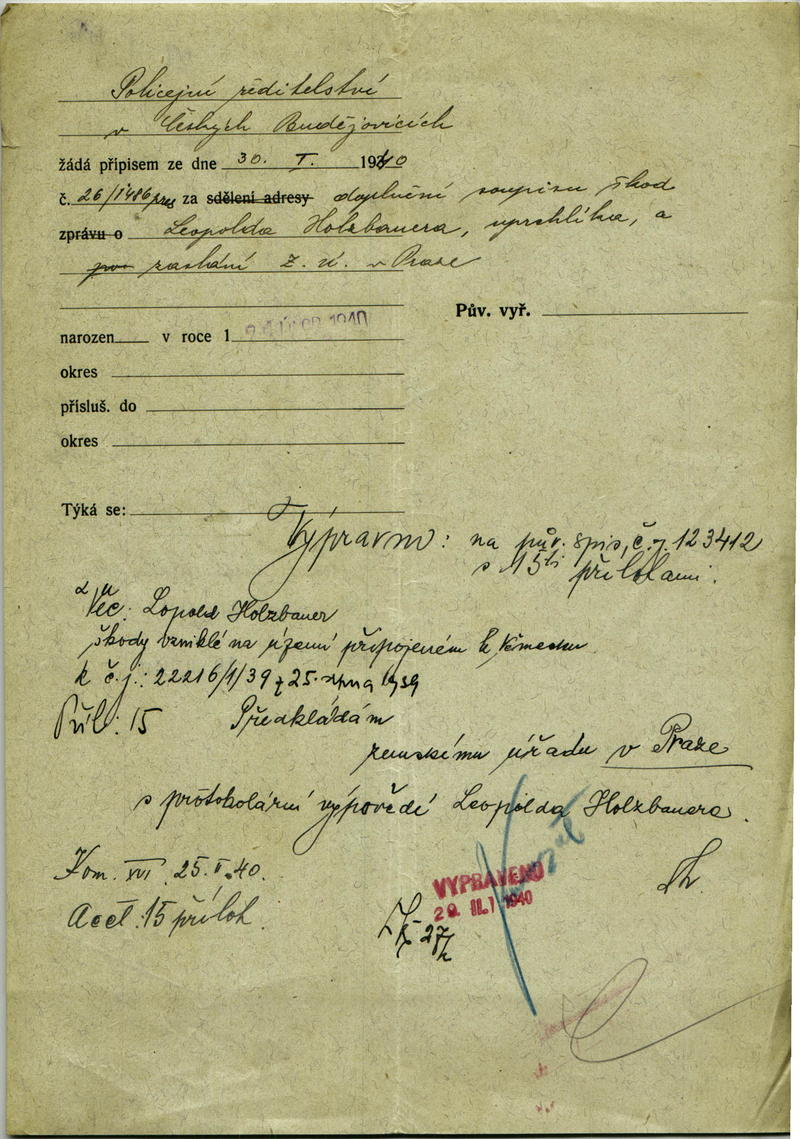 Policejní ředitelství
v Českých Budějovicích
žádá přípisem ze dne 30. I. 1940
č. 26/1486 pres za sdělení adresy doplnění soupisu škod
zprávu o Leopolda Holzbauera, uprchlíka, a
zaslání z. ú. v Praze
Pův. vyř.
narozen v roce 1
1940
okres
přísluš. do
okres
Týká se:
Výpravně: na pův. spis, č. j. 123412
s 15ti přílohami.
Věc: Lopold Holzbauer
škody vzniklé na území připojeném k Německu
k č. j.: 22216/1/39 z 25. srpna 1939
Příl: 15 Předkládám
zemskému úřadu v Praze
s protokolární výpovědí Leopolda Holzbauera.
Kom. XVI 25. II. 40.
Accl. 15 příloh.
VYPRAVENO
29. II. 1940
27/2